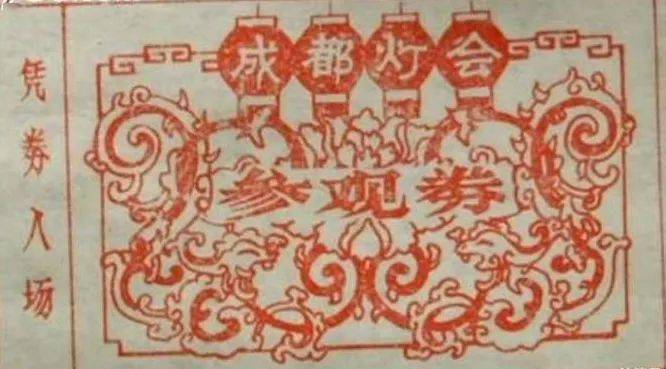 成都灯会
参观券
凭券入场